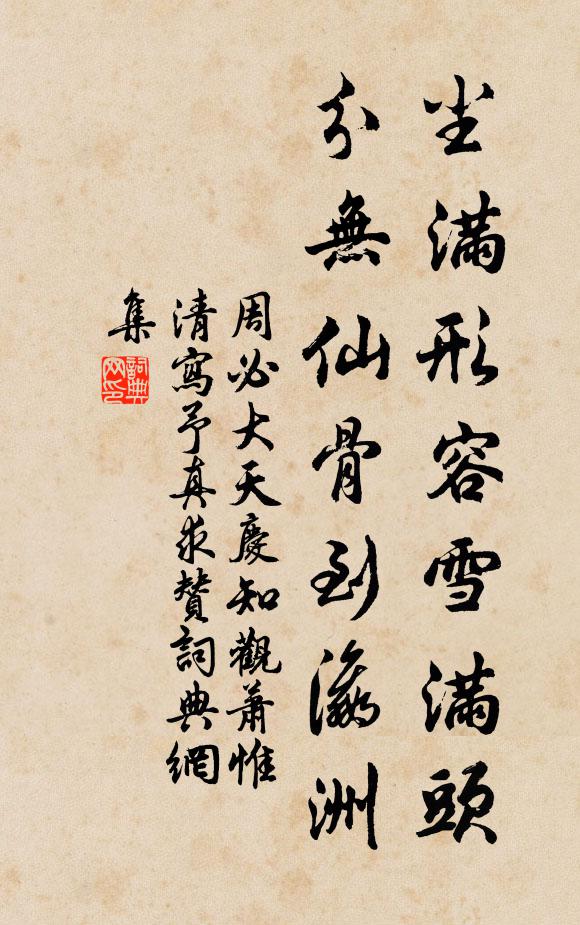 尘滿形容雪滿頭
分無仙骨到瀛洲
周必大天慶知觀蕭惟
清寫予真求贊詞典網
集
詞典网印